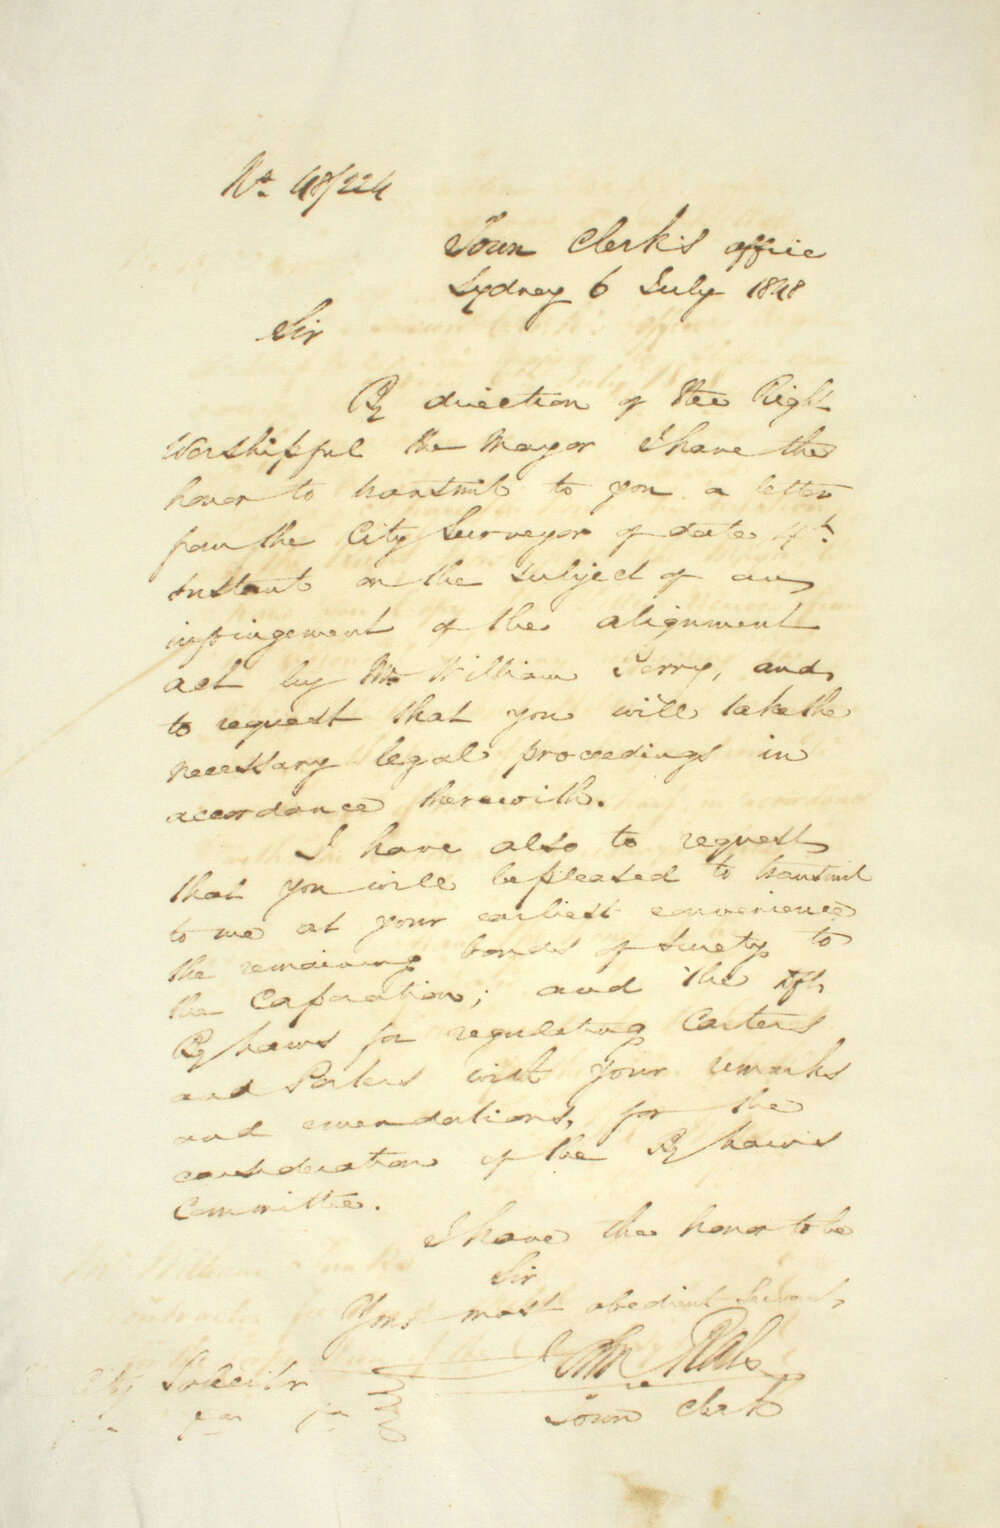 No. 48/224
Town Clerk's office
Sydney 6 July 1848
Sir
By direction of the Right
Worshipful the Mayor I have the
honor to transmit to you a letter
from the City Surveyor of date 4th
instant on the subject of an
infringement of the alignment
act by Mr William Perry, and
to request that you will take the
necessary legal proceedings in
accordance therewith.
I have also to request
that you will be pleased to transmit
to me at your earliest convenience
the remaining bonds of surety to
the Corporation; and the
By Laws for regulating Carters
and Porters with your remarks
and emendations, for the
consideration of the By Laws
Committee.
I have the honor to be
Sir
Your most obedient Servant,
John
Town Clerk
City Solicitor